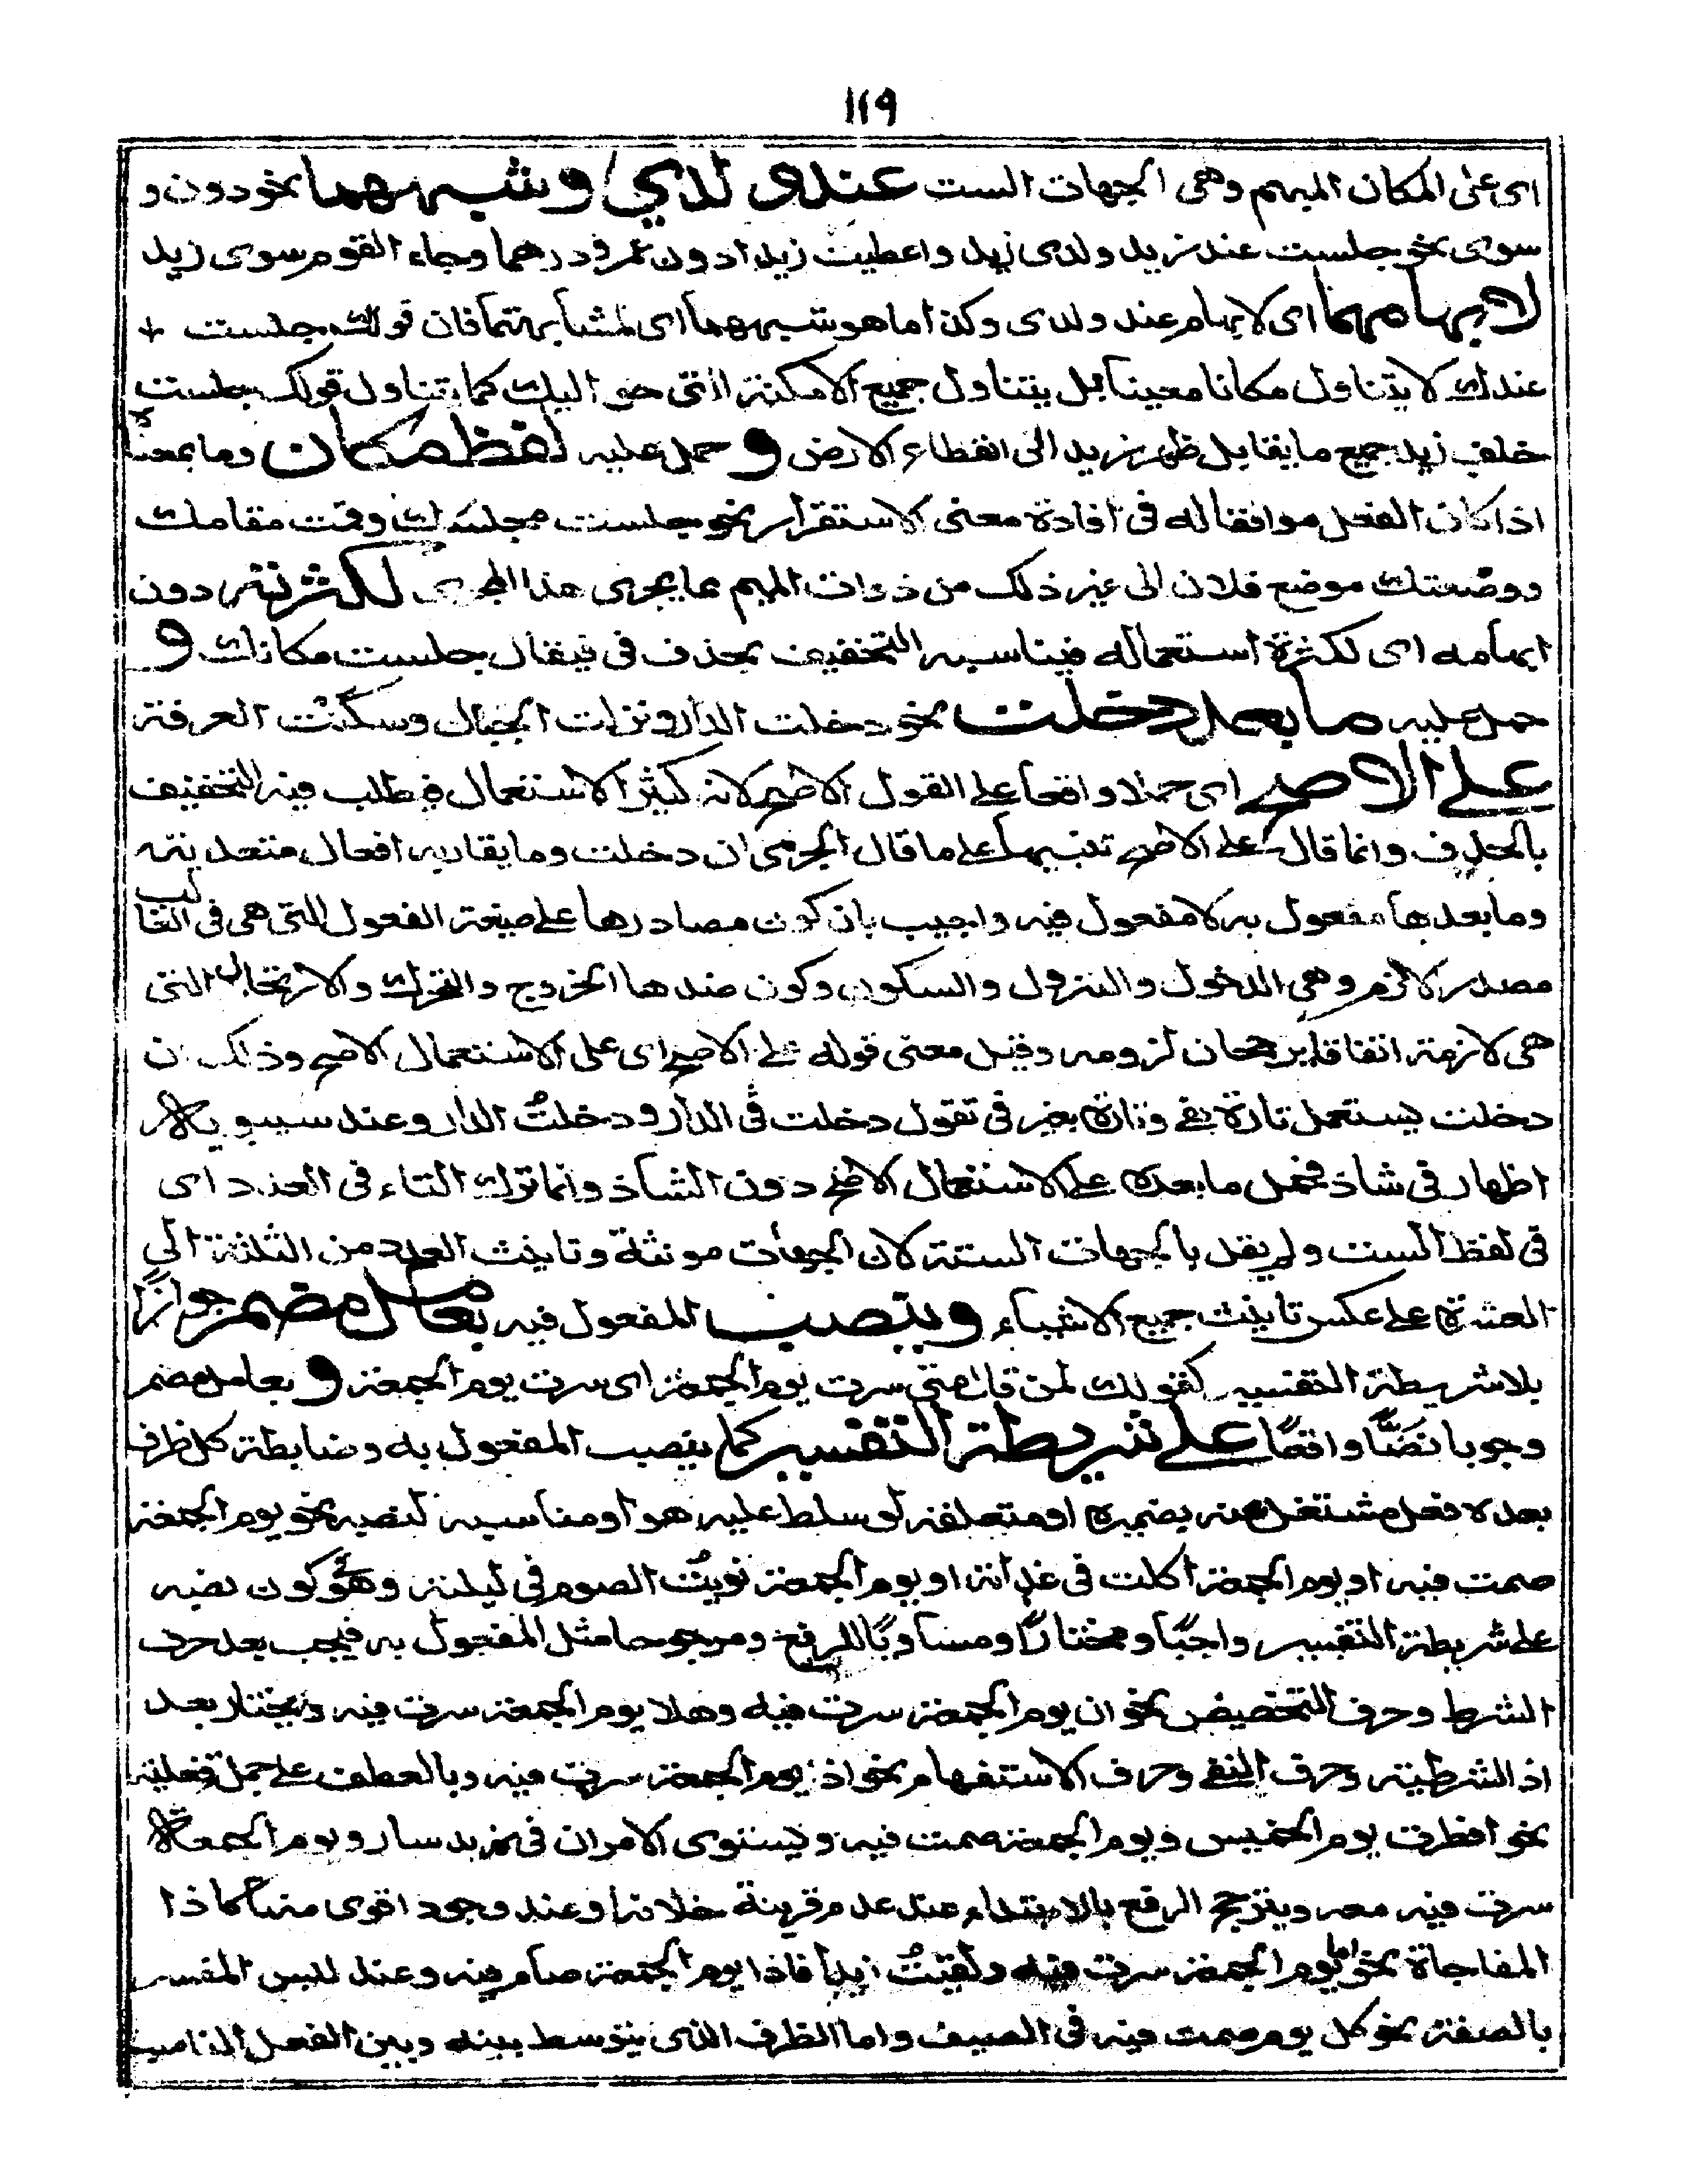 ١١٩
اى على المكان المبهم وهى الجهات الست عند و لدي وشبههما نحو دون و
سوى نحو جلست عند زيد ولدى زيد واعطيت زيدا دون عمرو درهما وجاء القوم سوى زيد
لابهامهما اى لابهام عند ولدى وكذا ما هو شبههما اى لمشابهتهما فان قولك جلست
عندك لا يتناول مكانا معينا بل يتناول جميع الامكنة التى حواليك كما يتناول قولك جلست
خلف زيد جميع ما يقابل ظهر زيد الى انقطاع الارض و حمل عليه لفظ مكان وما بمعناه
اذا كان الفعل موافقا له فى افادة معنى الاستقرار نحو جلست مجلسك وقمت مقامك
ووضعتك موضع فلان الى غير ذلك من ذوات الميم مما يجرى هذا المجرى لكثرته دون
ابهامه اى لكثرة استعماله فيناسبه التخفيف بحذف فى فيقال جلست مكانك و
حمل عليه ما بعد دخلت نحو دخلت الدار ونزلت الجبال وسكنت الغرفة
على الاصح اى حملا واقعا على القول الاصح لانه كثير الاستعمال فيطلب فيه التخفيف
بالحذف وانما قال على الاصح تنبيها على ما قال الجرمى ان دخلت وما يقاربه افعال متعدية
وما بعدها مفعول به لا مفعول فيه واجيب بان كون مصادرها على صيغة الفعول التى هى فى الغالب
مصدر لازم وهى الدخول والنزول والسكون وكون ضدها الخروج والتحرك والارتحال التى
هى لازمة اتفاقا برهان لزومه وقيل معنى قوله على الاصح اى على الاستعمال الاصح وذلك ان
دخلت يستعمل تارة بفى وتارة بغير فى تقول دخلت فى الدار ودخلت الدار وعند سيبويه لا
اظهار فى شاذ فحمل ما بعده على الاستعمال الاصح دون الشاذ وانما ترك التاء فى العدد اى
فى لفظ الست ولم يقل بالجهات الستة لان الجهات مونثة وتانيث العدد من الثلثة الى
العشرة على عكس تانيث جميع الاشياء وينصب المفعول فيه بعامل مضمر جوازا
بلا شريطة التفسير كقولك لمن قال متى سرت يوم الجمعة اى سرت يوم الجمعة و بعامل مضمر
وجوبا نصبًا واقعًا على شريطة التفسير كما ينصب المفعول به وضابطة كل ظرف
بعده فعل مشتغل عنه بضميره او متعلقه لو سلط عليه هو او مناسبه لنصبه نحو يوم الجمعة
صمت فيه او يوم الجمعة اكلت فى غداته او يوم الجمعة نويت الصوم فى ليلته وهو كون نصبه
على شريطة التفسير واجبًا ومختارًا ومساويًا للرفع ومرجوحا مثل المفعول به فيجب بعد حرف
الشرط وحرف التحضيض نحو ان يوم الجمعة سرت فيه وهلا يوم الجمعة سرت فيه ويختار بعد
اذ الشرطية وحرف النفى وحرف الاستفهام نحو اذ يوم الجمعة سرت فيه وبالعطف على جملة فعلية
نحو افطرت يوم الخميس ويوم الجمعة صمت فيه ويستوى الامران فى نحو زيد سار ويوم الجمعة
سرت فيه معه ويترجح الرفع بالابتداء عند عدم قرينة خلافه او عند وجود اقوى منها كاذا
المفاجاة نحو اما يوم الجمعة سرت فيه ولقيت زيدا فاذا يوم الجمعة صام فيه وعند لبس المفسر
بالصفة نحو كل يوم صمت فيه فى الصيف واما الظرف الذى يتوسط بينه وبين الفعل الناصب